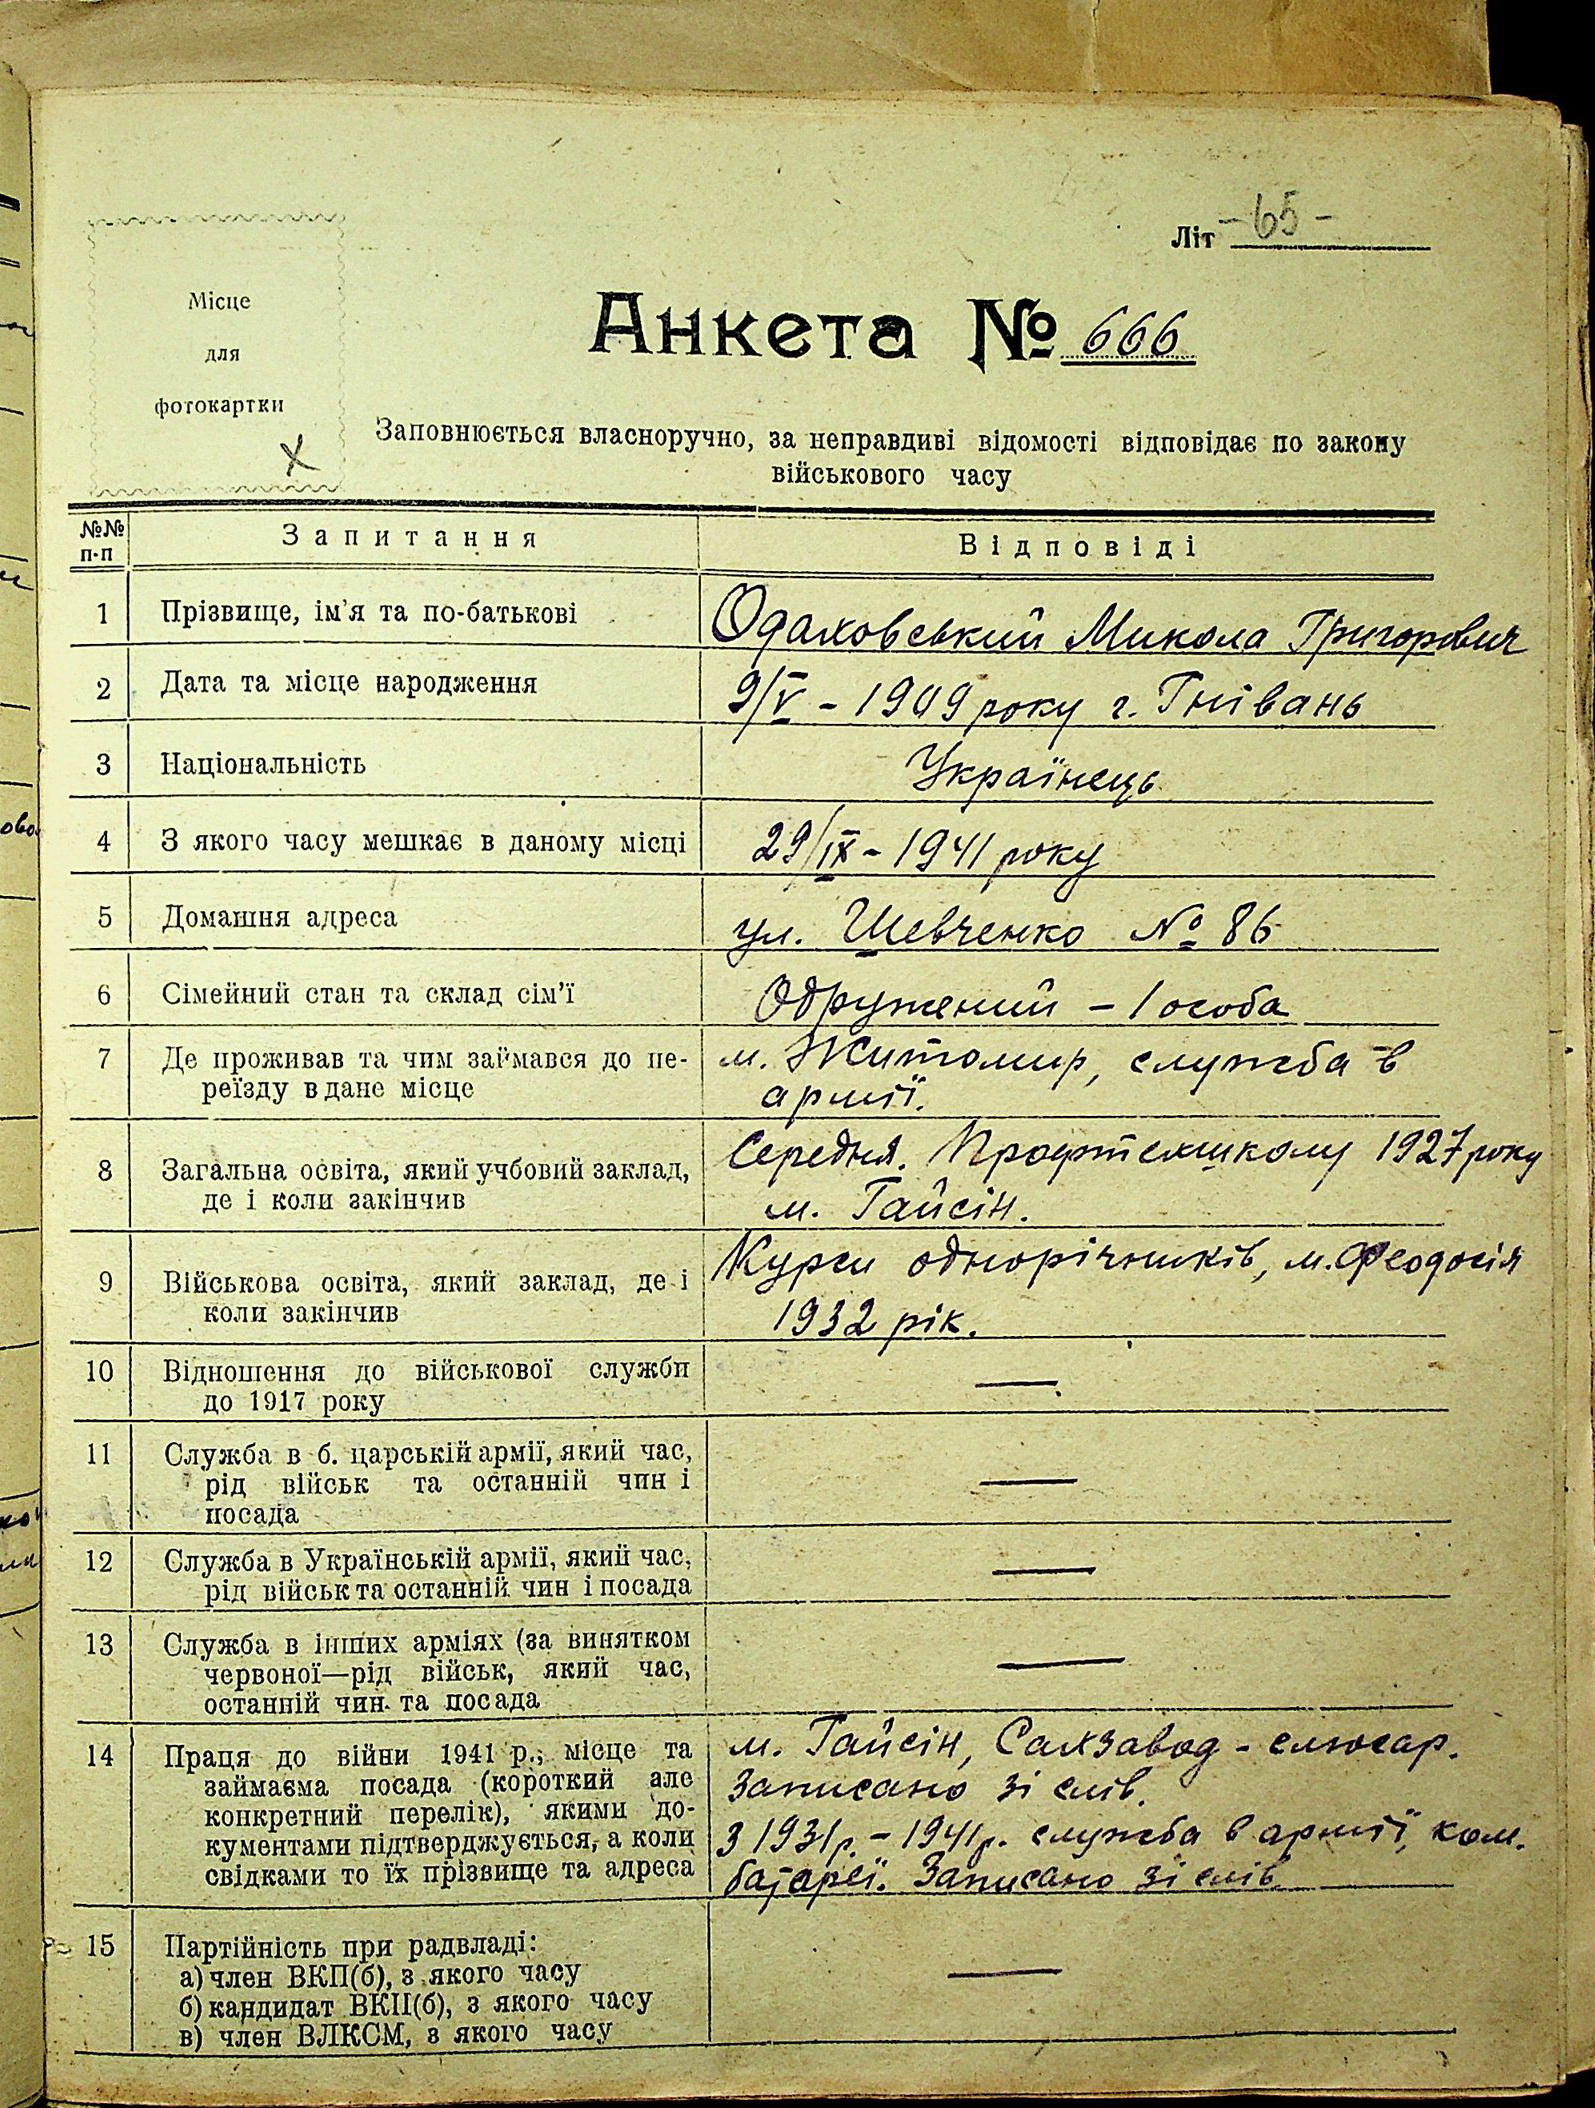 Літ -65-
Місце
для
фотокартки
Анкета № 666
Заповнюється власноручно, за неправдиві відомості відповідає по закону
військового часу
№№ п-п Запитання Відповіді
1 Прізвище, ім'я та по-батькові Одаховський Микола Григорович
2 Дата та місце народження 9/V - 1909 року г. Гнівань
3 Національність Українець
4 З якого часу мешкає в даному місці 29/IX - 1941 року
5 Домашня адреса ул. Шевченко № 86
6 Сімейний стан та склад сім'ї Одружений - 1 особа
7 Де проживав та чим займався до пе- м. Житомир, служба в
реїзду в дане місце армії.
8 Загальна освіта, який учбовий заклад, Середня. Профтехшколу 1927 року
де і коли закінчив м. Гайсін.
9 Військова освіта, який заклад, де і Курси однорічників, м. Феодосія
коли закінчив 1932 рік.
10 Відношення до військової служби —
до 1917 року
11 Служба в б. царській армії, який час, —
рід військ та останній чин і
посада
12 Служба в Українській армії, який час, —
рід військ та останній чин і посада
13 Служба в інших арміях (за винятком —
червоної—рід військ, який час,
останній чин та посада
14 Праця до війни 1941 р., місце та м. Гайсін, Сахзавод - слюсар.
займаєма посада (короткий але Записано зі слів.
конкретний перелік), якими до-
кументами підтверджується, а коли З 1931р. - 1941р. служба в армії, ком.
свідками то їх прізвище та адреса батареї. Записано зі слів.
15 Партійність при радвладі: —
а) член ВКП(б), з якого часу
б) кандидат ВКП(б), з якого часу
в) член ВЛКСМ, з якого часу